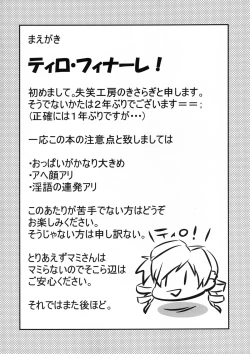 まえがき
ティロ・フィナーレ!
初めまして。失笑工房のきさらぎと申します。
そうでないかたは2年ぶりでございます==;
(正確には1年ぶりですが・・・)
一応この本の注意点と致しましては
・おっぱいがかなり大きめ
・アヘ顔アリ
・淫語の連発アリ
このあたりが苦手でない方はどうぞ
お楽しみください。
そうじゃない方は申し訳ない。
ティロ!
とりあえずマミさんは
マミらないのでそこら辺は
ご安心ください。
それではまた後ほど。